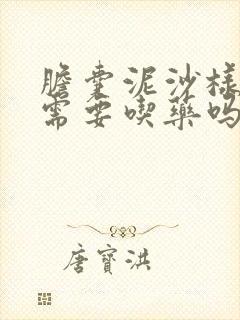 膽囊泥沙樣
需要喫藥嗎
唐寶洪